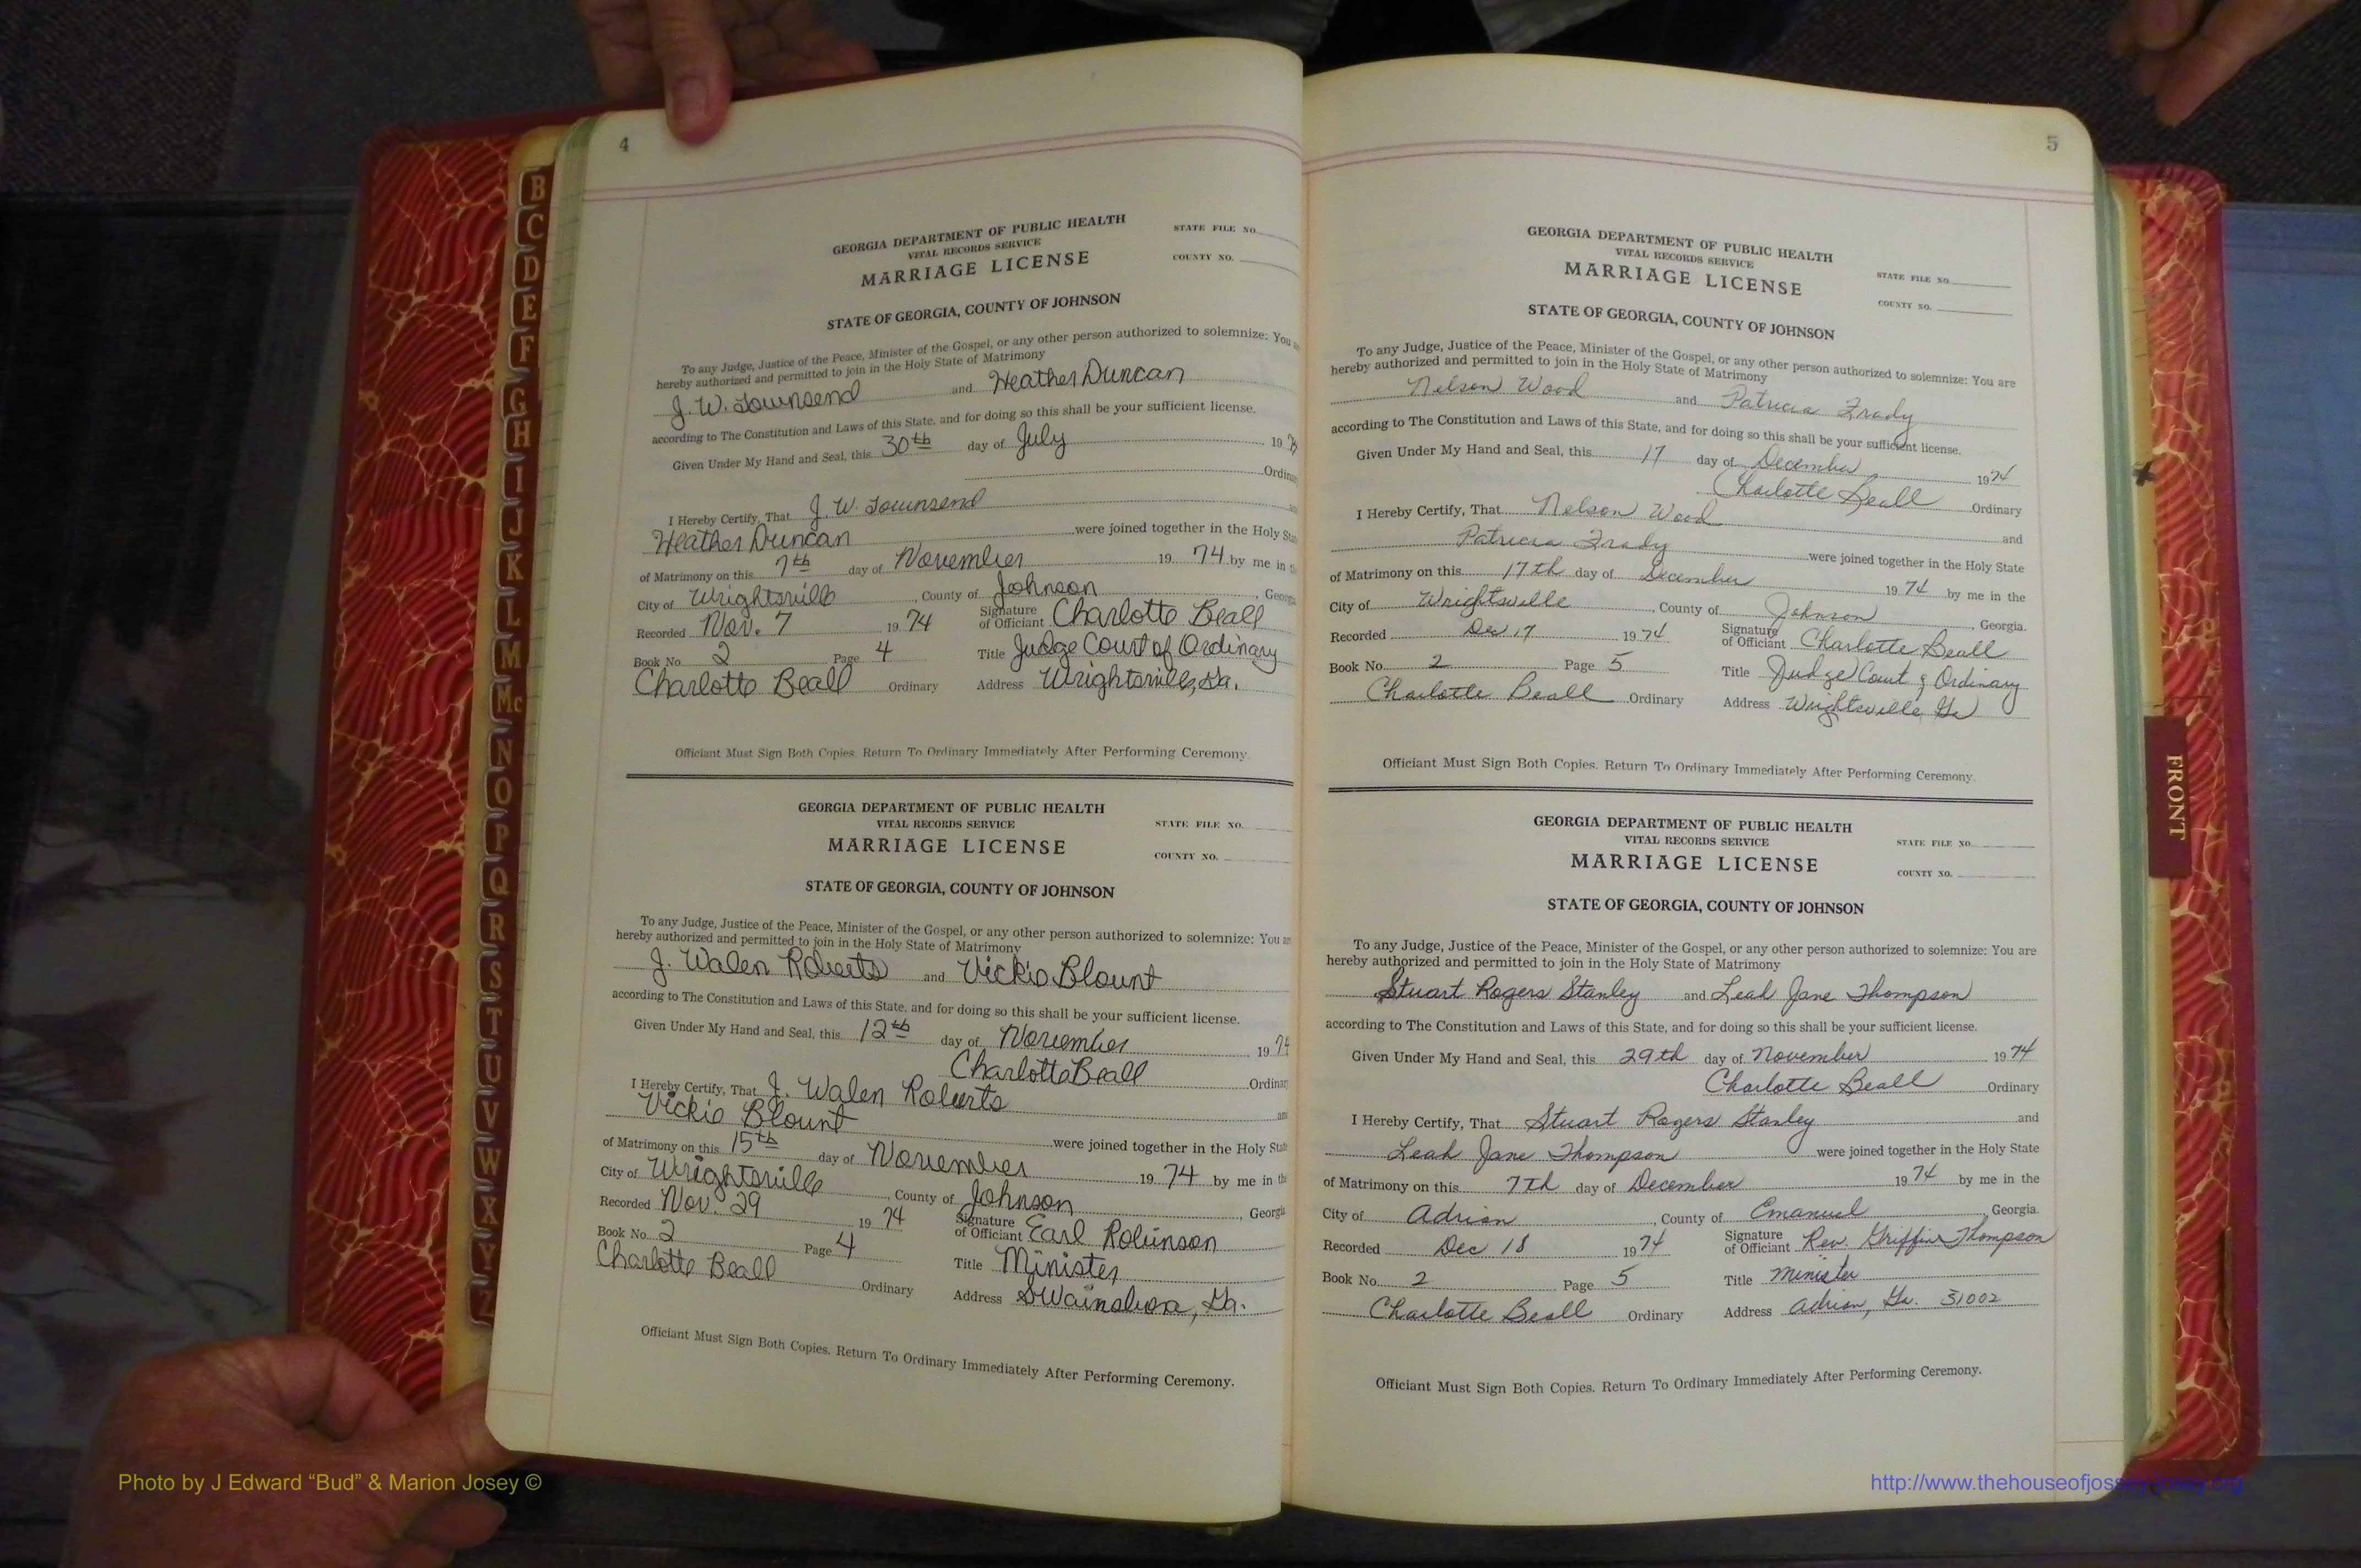 4
GEORGIA DEPARTMENT OF PUBLIC HEALTH
VITAL RECORDS SERVICE
MARRIAGE LICENSE
STATE FILE NO.
COUNTY NO.
STATE OF GEORGIA, COUNTY OF JOHNSON
To any Judge, Justice of the Peace, Minister of the Gospel, or any other person authorized to solemnize: You
hereby authorized and permitted to join in the Holy State of Matrimony
J. W. Townsend and Heather Duncan
according to The Constitution and Laws of this State, and for doing so this shall be your sufficient license.
Given Under My Hand and Seal, this 30th day of July 19
I Hereby Certify, That J. W. Townsend
Heather Duncan were joined together in the Holy
of Matrimony on this 7th day of November 19 74 by me in
City of Wrightsville, County of Johnson
Recorded Nov. 7 19 74 Signature of Officiant Charlotte Beall
Book No. 2 Page 4 Title Judge Court of Ordinary
Charlotte Beall Ordinary Address Wrightsville, Ga.
Officiant Must Sign Both Copies. Return To Ordinary Immediately After Performing Ceremony.
GEORGIA DEPARTMENT OF PUBLIC HEALTH
VITAL RECORDS SERVICE
MARRIAGE LICENSE
STATE FILE NO.
COUNTY NO.
STATE OF GEORGIA, COUNTY OF JOHNSON
To any Judge, Justice of the Peace, Minister of the Gospel, or any other person authorized to solemnize: You
hereby authorized and permitted to join in the Holy State of Matrimony
J. Walen Roberts and Vickie Blount
according to The Constitution and Laws of this State, and for doing so this shall be your sufficient license.
Given Under My Hand and Seal, this 12th day of November 19
Charlotte Beall
I Hereby Certify, That J. Walen Roberts
Vickie Blount were joined together in the Holy
of Matrimony on this 15th day of November 19 74 by me in
City of Wrightsville, County of Johnson,
Recorded Nov. 29 19 74 Signature of Officiant Earl Robinson
Book No. 2 Page 4 Title Minister
Charlotte Beall Ordinary Address Swainsboro, Ga.
Officiant Must Sign Both Copies. Return To Ordinary Immediately After Performing Ceremony.
5
GEORGIA DEPARTMENT OF PUBLIC HEALTH
VITAL RECORDS SERVICE
MARRIAGE LICENSE
STATE FILE NO.
COUNTY NO.
STATE OF GEORGIA, COUNTY OF JOHNSON
To any Judge, Justice of the Peace, Minister of the Gospel, or any other person authorized to solemnize: You are
hereby authorized and permitted to join in the Holy State of Matrimony
Nelson Wood and Patricia Frady
according to The Constitution and Laws of this State, and for doing so this shall be your sufficient license.
Given Under My Hand and Seal, this 17 day of December 1974
Charlotte Beall Ordinary
I Hereby Certify, That Nelson Wood and
Patricia Frady were joined together in the Holy State
of Matrimony on this 17th day of December 19 74 by me in the
City of Wrightsville, County of Johnson, Georgia.
Recorded Dec 17 19 74 Signature of Officiant Charlotte Beall
Book No. 2 Page 5 Title Judge Court of Ordinary
Charlotte Beall Ordinary Address Wrightsville, Ga
Officiant Must Sign Both Copies. Return To Ordinary Immediately After Performing Ceremony.
GEORGIA DEPARTMENT OF PUBLIC HEALTH
VITAL RECORDS SERVICE
MARRIAGE LICENSE
STATE FILE NO.
COUNTY NO.
STATE OF GEORGIA, COUNTY OF JOHNSON
To any Judge, Justice of the Peace, Minister of the Gospel, or any other person authorized to solemnize: You are
hereby authorized and permitted to join in the Holy State of Matrimony
Stuart Rogers Stanley and Leah Jane Thompson
according to The Constitution and Laws of this State, and for doing so this shall be your sufficient license.
Given Under My Hand and Seal, this 29th day of November 19 74
Charlotte Beall Ordinary
I Hereby Certify, That Stuart Rogers Stanley and
Leah Jane Thompson were joined together in the Holy State
of Matrimony on this 7th day of December 19 74 by me in the
City of Adrian, County of Emanuel, Georgia.
Recorded Dec 18 19 74 Signature of Officiant Rev. Griffin Thompson
Book No. 2 Page 5 Title Minister
Charlotte Beall Ordinary Address Adrian, Ga. 31002
Officiant Must Sign Both Copies. Return To Ordinary Immediately After Performing Ceremony.
B
C
D
E
F
G
H
I
J
K
L
M
Mc
N
O
P
Q
R
S
T
U
V
W
X
Y
Z
FRONT
Photo by J Edward “Bud” & Marion Josey ©
http://www.thehouseofjossey-josey.org